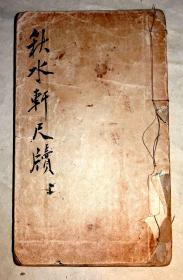 秋水軒尺牘上